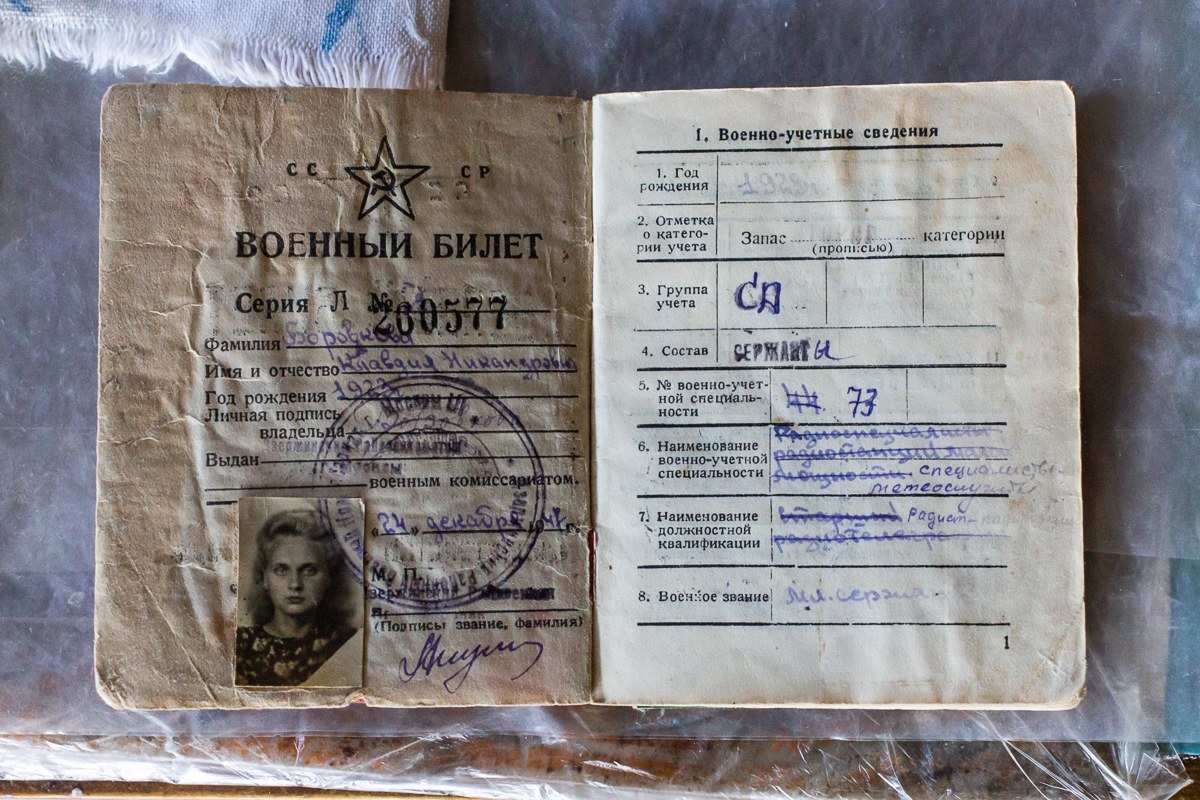 СС СР
ВОЕННЫЙ БИЛЕТ
Серия Л № 260577
Фамилия
Имя и отчество Клавдия Никандровна
Год рождения 1923
Личная подпись
владельца
Выдан
военным комиссариатом.
„24" декабря 194 г.
М. П.
(Подпись, звание, фамилия)
1. Военно-учетные сведения
1. Год
рождения
2. Отметка
о катего-
рии учета
Запас категории
(прописью)
3. Группа
учета
СА
4. Состав
СЕРЖАНТЫ
5. № военно-учет-
ной специаль-
ности
44 73
6. Наименование
военно-учетной
специальности
Радиоспециалисты
радиостанций мал.
мощности специалист
метеослужбы
7. Наименование
должностной
квалификации
старший Радист-
радиотелегр
8. Военное звание
мл. сержа
1